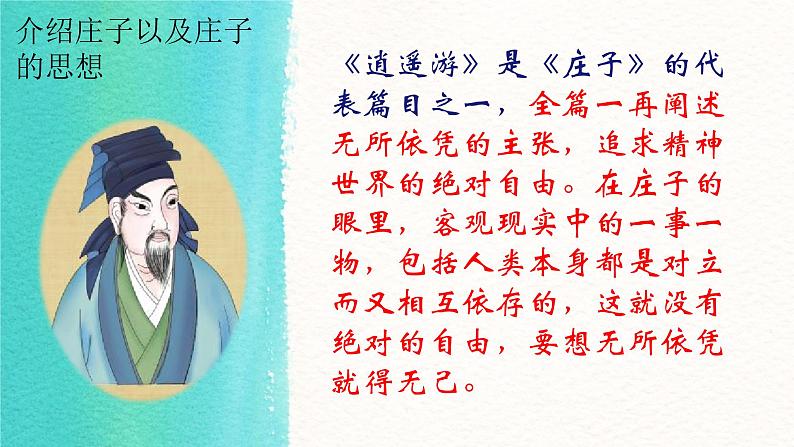 介绍庄子以及庄子
的思想
《逍遥游》是《庄子》的代
表篇目之一，全篇一再阐述
无所依凭的主张，追求精神
世界的绝对自由。在庄子的
眼里，客观现实中的一事一
物，包括人类本身都是对立
而又相互依存的，这就没有
绝对的自由，要想无所依凭
就得无己。